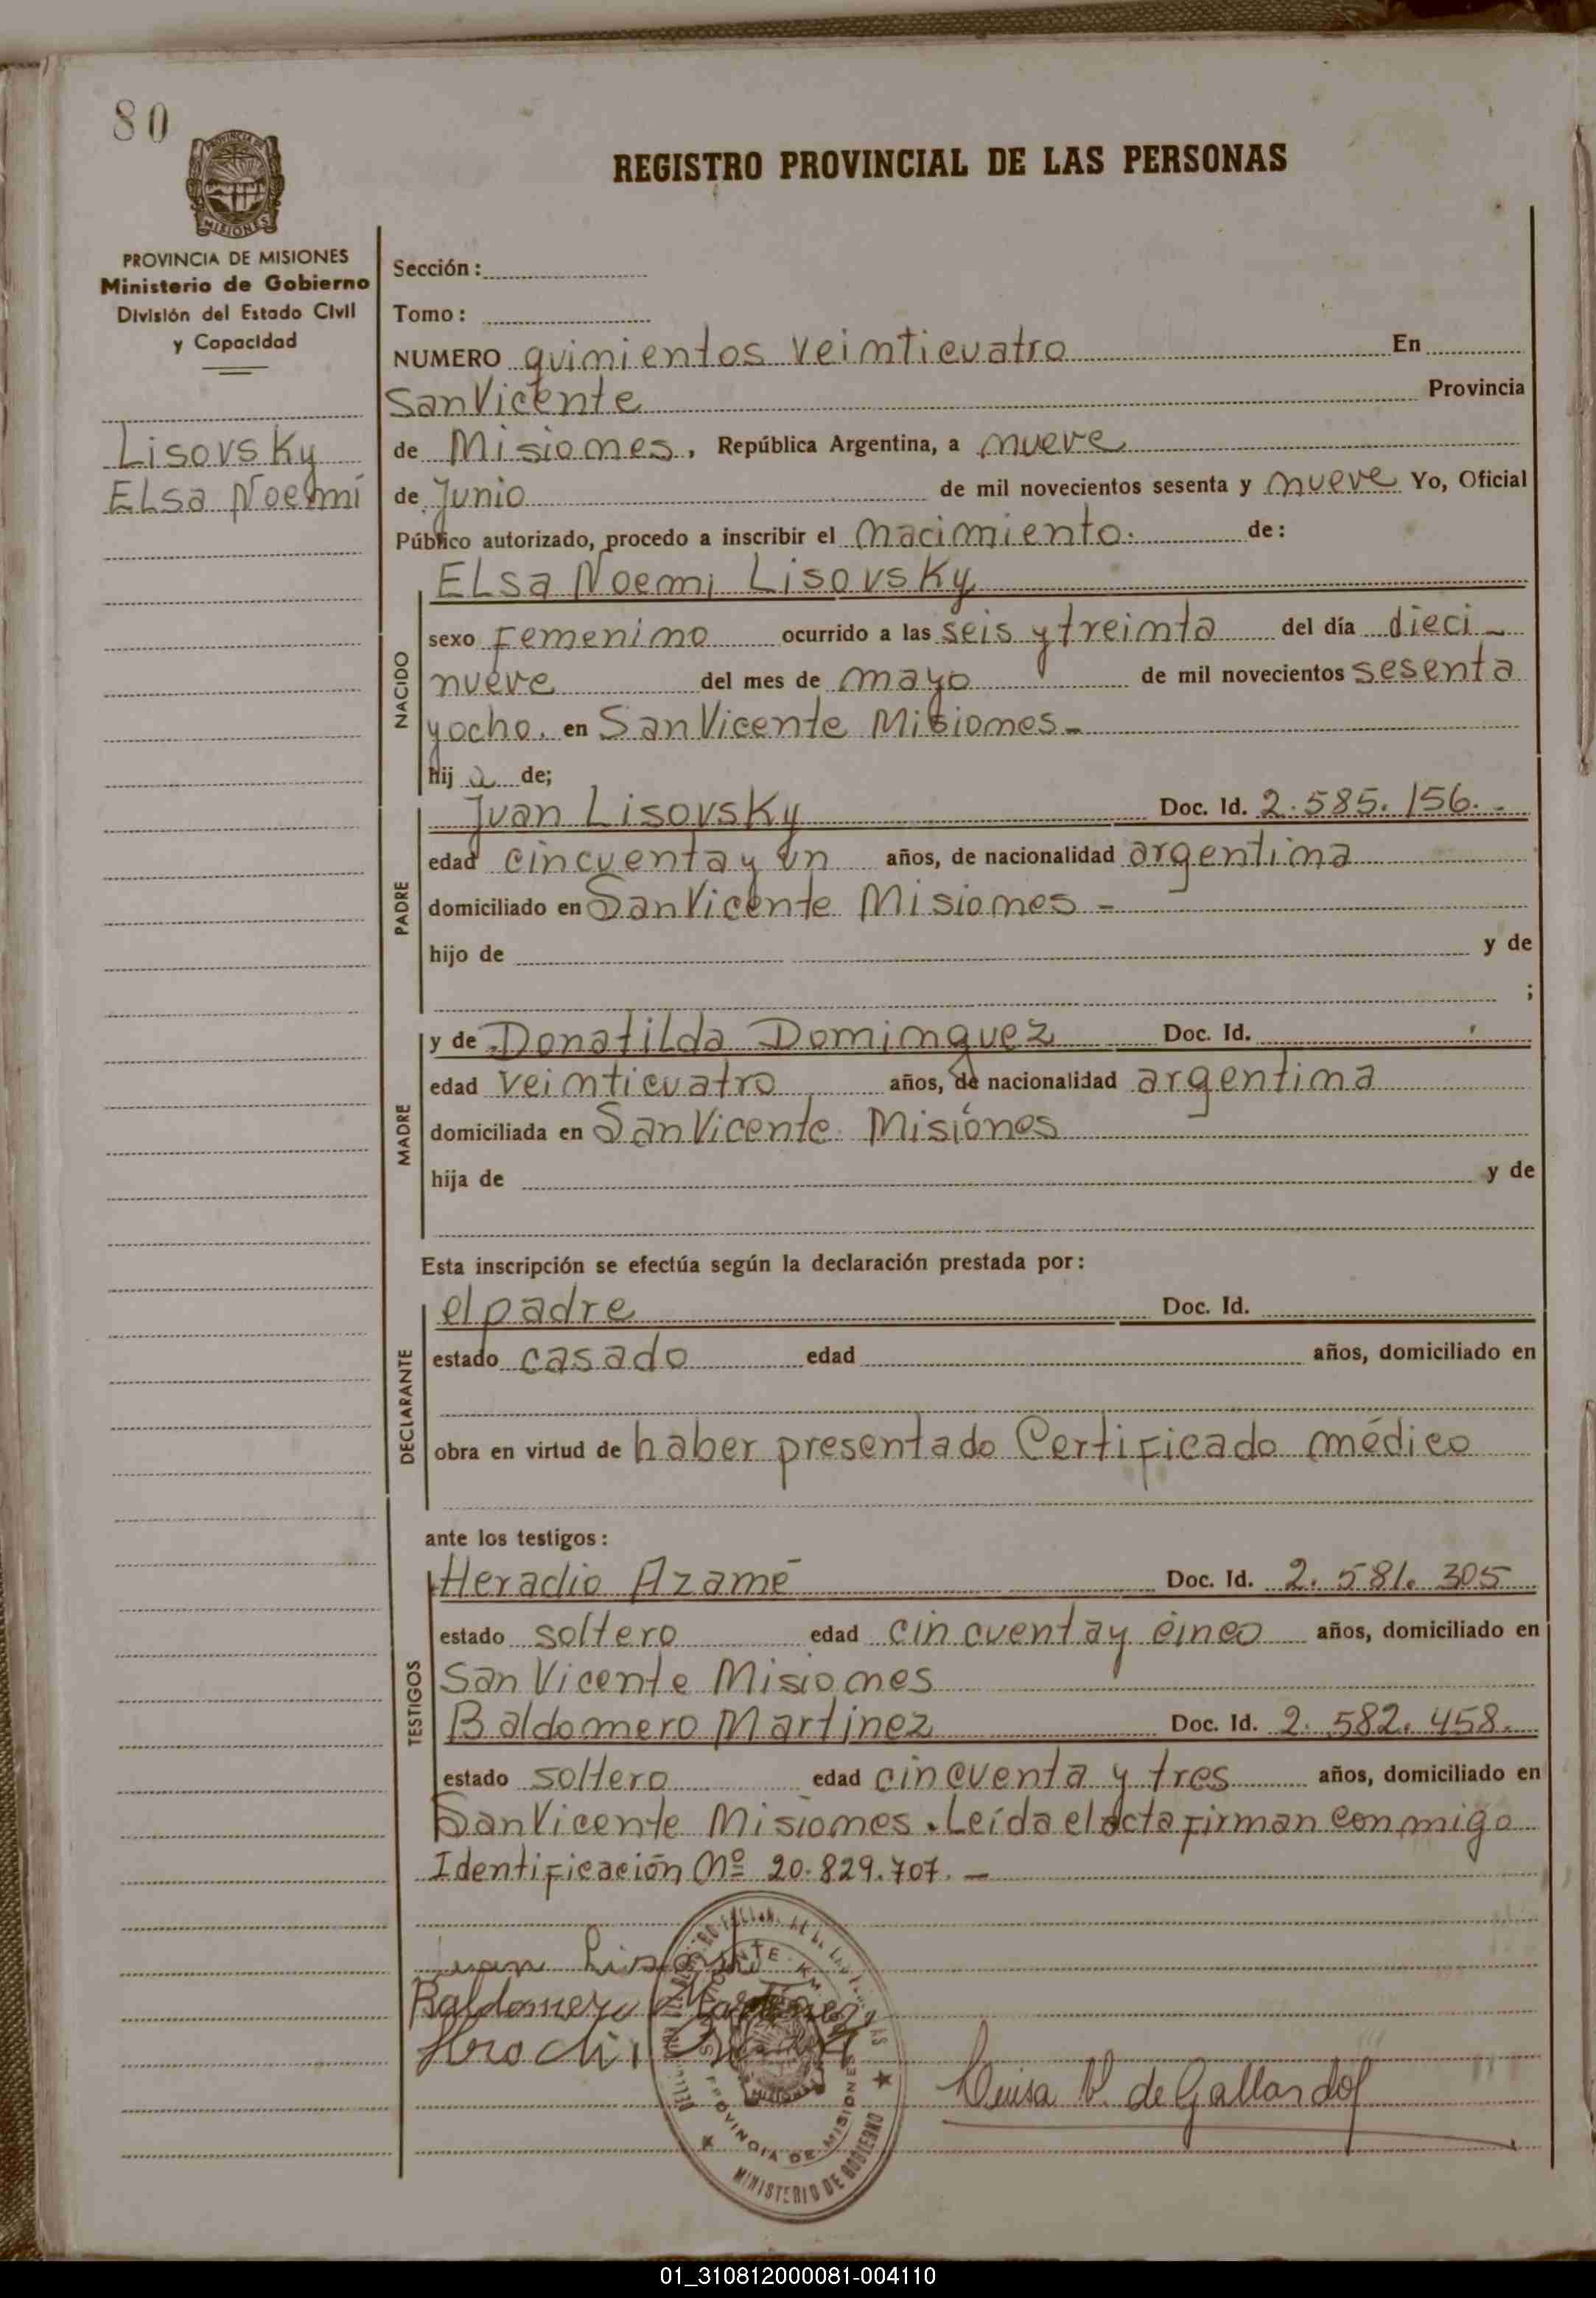 80
PROVINCIA DE
MISIONES
REGISTRO PROVINCIAL DE LAS PERSONAS
PROVINCIA DE MISIONES
Ministerio de Gobierno
División del Estado Civil
y Capacidad
Lisovsky
Elsa Noemí
Sección:
Tomo:
NUMERO quinientos veinticuatro En
San Vicente Provincia
de Misiones, República Argentina, a nueve
de Junio de mil novecientos sesenta y nueve Yo, Oficial
Público autorizado, procedo a inscribir el nacimiento. de:
Elsa Noemi Lisovsky
NACIDO
sexo Femenino ocurrido a las seis y treinta del día dieci-
nueve del mes de mayo de mil novecientos sesenta
y ocho. en San Vicente Misiones-
hij a de;
PADRE
Juan Lisovsky Doc. Id. 2.585.156.-
edad cincuenta y un años, de nacionalidad argentina
domiciliado en San Vicente Misiones -
hijo de y de
;
MADRE
y de Donatilda Dominguez Doc. Id.
edad veinticuatro años, de nacionalidad argentina
domiciliada en San Vicente Misiones
hija de y de
Esta inscripción se efectúa según la declaración prestada por:
DECLARANTE
el padre Doc. Id.
estado casado edad años, domiciliado en
obra en virtud de haber presentado Certificado médico
ante los testigos:
TESTIGOS
Heradio Azame Doc. Id. 2.581.305
estado soltero edad cincuenta y cinco años, domiciliado en
San Vicente Misiones
Baldomero Martinez Doc. Id. 2.582.458.
estado soltero edad cincuenta y tres años, domiciliado en
San Vicente Misiones. Leída el acta firman conmigo
Identificación Nº 20.829.707.-
Juan
Baldomero Martinez
Luisa V. de Gallardo
PROVINCIA DE MISIONES
MINISTERIO DE GOBIERNO
01_310812000081-004110